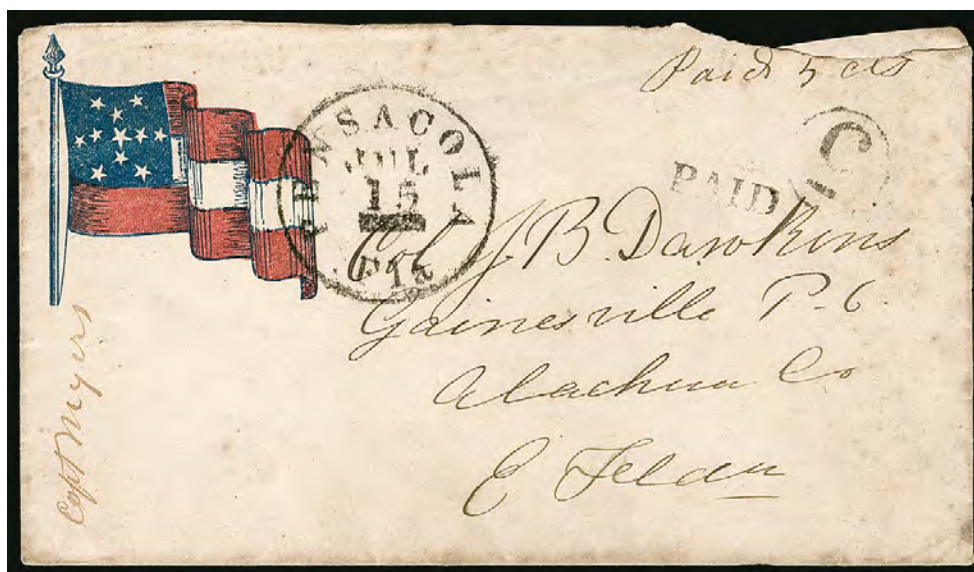 Paid 5 cts
PENSACOLA
JUL
15
Fla
PAID
C
Col J B Dawkins
Gainesville P. O
Alachua Co
E
Capt Myers